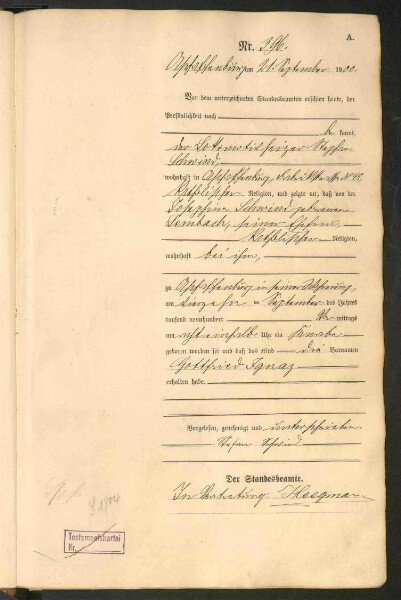 A.
Nr. 396.
Aschaffenburg am 21. September 1900.
Vor dem unterzeichneten Standesbeamten erschien heute, der
Persönlichkeit nach
be kannt,
der Lokomotivheizer Stephan
Schwind,
wohnhaft in Aschaffenburg,
katholischer Religion, und zeigte an, daß von der
Josephine Schwind geborenen
Lembach, seiner Ehefrau,
katholischer Religion,
wohnhaft bei ihm,
zu Aschaffenburg in seiner Wohnung,
am September des Jahres
tausend neunhundert Vor mittags
um achteinhalb Uhr ein Knabe
geboren worden sei und daß das Kind die Vornamen
Gottfried Ignaz
erhalten habe.
Vorgelesen, genehmigt und unterschrieben
Stefan Schwind
Der Standesbeamte.
In Vertretung
Testamentskartei
Nr.